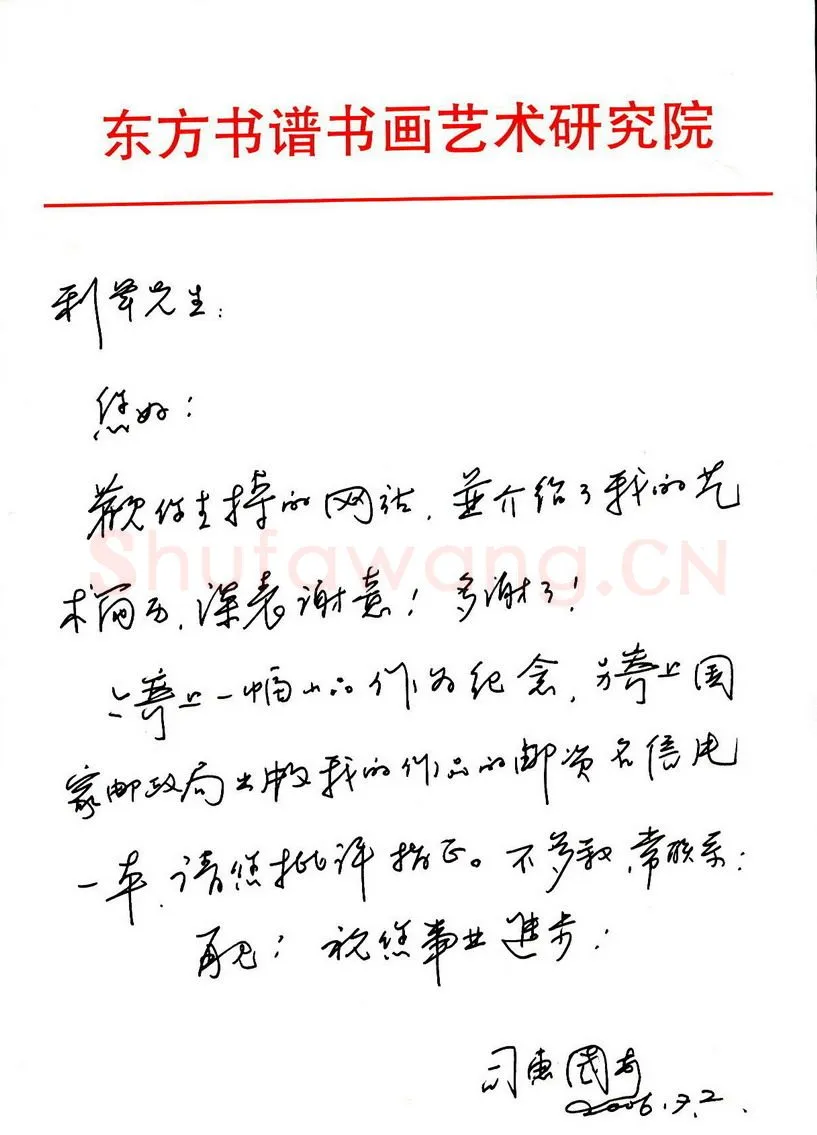 东方书谱书画艺术研究院
利军先生:
您好:
观你主持的网站,並介绍了我的艺
Shufawang.CN
术简历,深表谢意!多谢了!
寄上一幅小品作为纪念,另寄上国
家邮政局出版我的作品的邮资名信片
一本,请您批评指正。不多叙,常联系:
再见:祝您事业进步:
司惠国
2006.7.2.